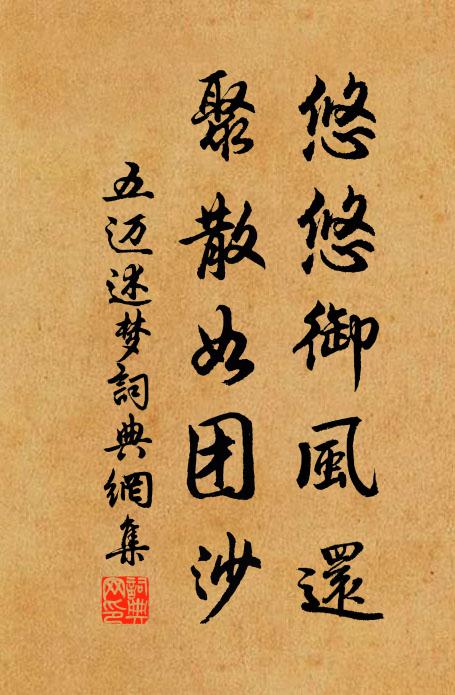 悠悠御風還
聚散如团沙
五迈迷梦詞典網集
詞典
网印